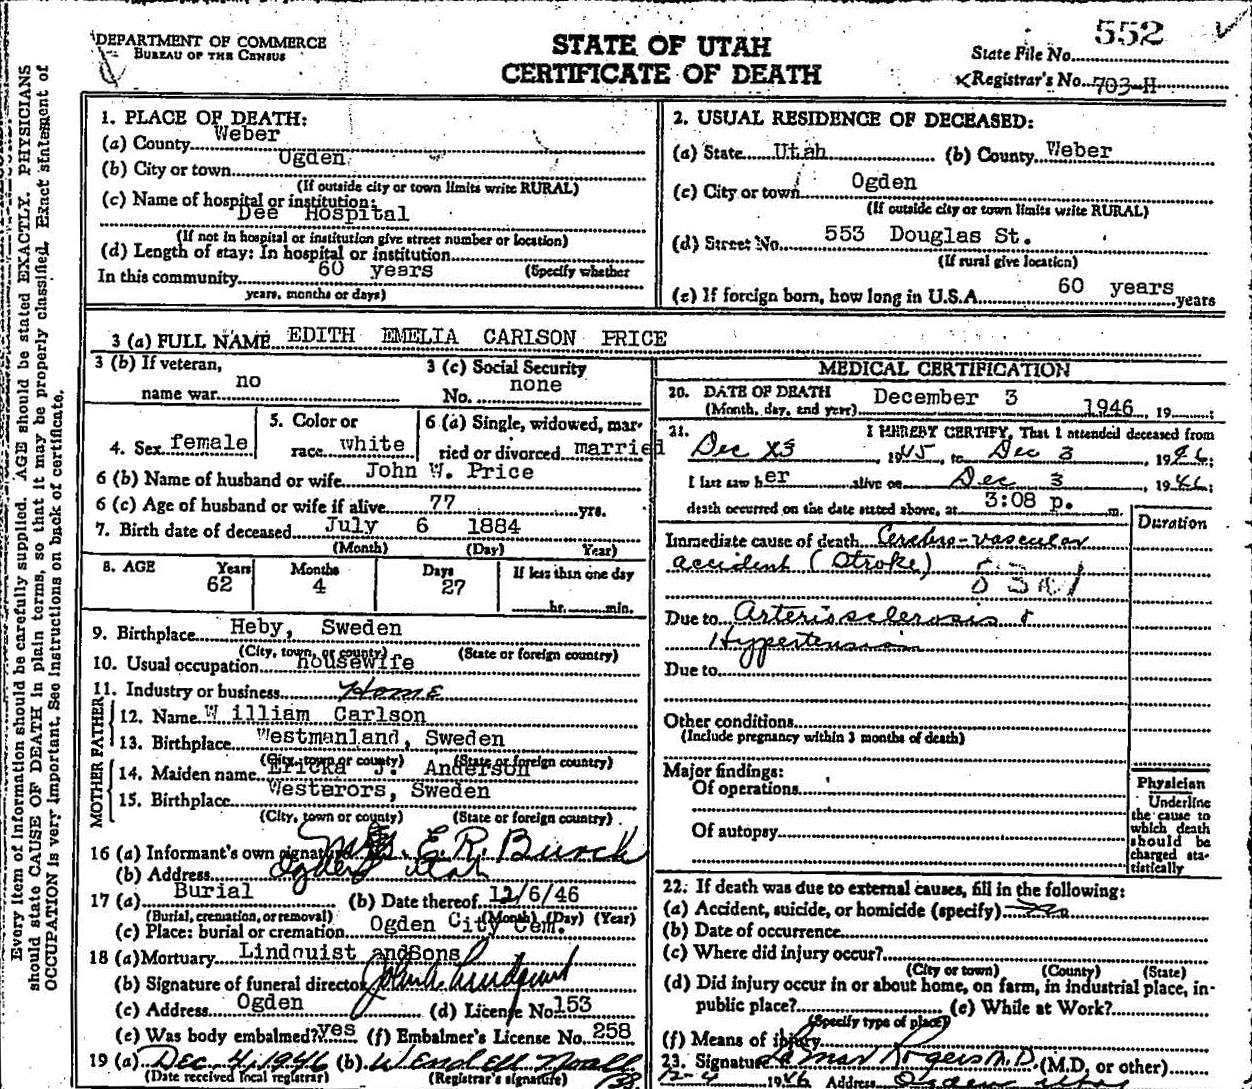 DEPARTMENT OF COMMERCE
BUREAU OF THE CENSUS
STATE OF UTAH
CERTIFICATE OF DEATH
State File No. 552
Registrar's No. 703-H
Every item of information should be carefully supplied. AGE should be stated EXACTLY. PHYSICIANS
should state CAUSE OF DEATH in plain terms, so that it may be properly classified. Exact statement of
OCCUPATION is very important. See instructions on back of certificate.
1. PLACE OF DEATH:
(a) County Weber
(b) City or town Ogden
(If outside city or town limits write RURAL)
(c) Name of hospital or institution:
Dee Hospital
(If not in hospital or institution give street number or location)
(d) Length of stay: In hospital or institution
In this community 60 years (Specify whether
years, months or days)
2. USUAL RESIDENCE OF DECEASED:
(a) State Utah (b) County Weber
(c) City or town Ogden
(If outside city or town limits write RURAL)
(d) Street No. 553 Douglas St.
(If rural give location)
(e) If foreign born, how long in U.S.A. 60 years years
3 (a) FULL NAME EDITH EMELIA CARLSON PRICE
3 (b) If veteran,
name war no
3 (c) Social Security
No. none
4. Sex female
5. Color or
race white
6 (a) Single, widowed, mar-
ried or divorced married
6 (b) Name of husband or wife John W. Price
6 (c) Age of husband or wife if alive 77 yrs.
7. Birth date of deceased July 6 1884
(Month) (Day) Year)
8. AGE Years Months Days If less than one day
62 4 27 hr. min.
9. Birthplace Heby, Sweden
(City, town, or county) (State or foreign country)
10. Usual occupation housewife
11. Industry or business Home
FATHER
12. Name W illiam Carlson
13. Birthplace Westmanland, Sweden
(City, town or county) (State or foreign country)
MOTHER
14. Maiden name Ericka J. Anderson
15. Birthplace Westerors, Sweden
(City, town or county) (State or foreign country)
16 (a) Informant's own signature Mrs. E.R. Burch
(b) Address Ogden Utah
17 (a) Burial (b) Date thereof 12/6/46
(Burial, cremation, or removal) (Month) (Day) (Year)
(c) Place: burial or cremation Ogden City Cem.
18 (a) Mortuary Lindquist andSons
(b) Signature of funeral director John A. Lindquist
(c) Address Ogden (d) License No. 153
(e) Was body embalmed? yes (f) Embalmer's License No. 258
19 (a) Dec 4, 1946 (b) Wendell Noall
(Date received local registrar) (Registrar's signature)
MEDICAL CERTIFICATION
20. DATE OF DEATH December 3
(Month, day, and year) 1946, 19 ;
21. I HEREBY CERTIFY, That I attended deceased from
Dec 3, 1945, to Dec 3 1946;
I last saw her alive on Dec 3, 1946;
death occurred on the date stated above, at 3:08 p. m.
Duration
Immediate cause of death Cerebro-vascular
accident (Stroke)
Due to Arteriosclerosis &
Hypertension
Due to
Other conditions
(Include pregnancy within 3 months of death)
Major findings:
Of operations
Of autopsy
Physician
Underline
the cause to
which death
should be
charged sta-
tistically
22. If death was due to external causes, fill in the following:
(a) Accident, suicide, or homicide (specify)
(b) Date of occurrence
(c) Where did injury occur?
(City or town) (County) (State)
(d) Did injury occur in or about home, on farm, in industrial place, in-
public place? (e) While at Work?
(Specify type of place)
(f) Means of injury
23. Signature LaMar Rogers M.D. (M.D, or other)
12-4 1946 Address Ogden Utah